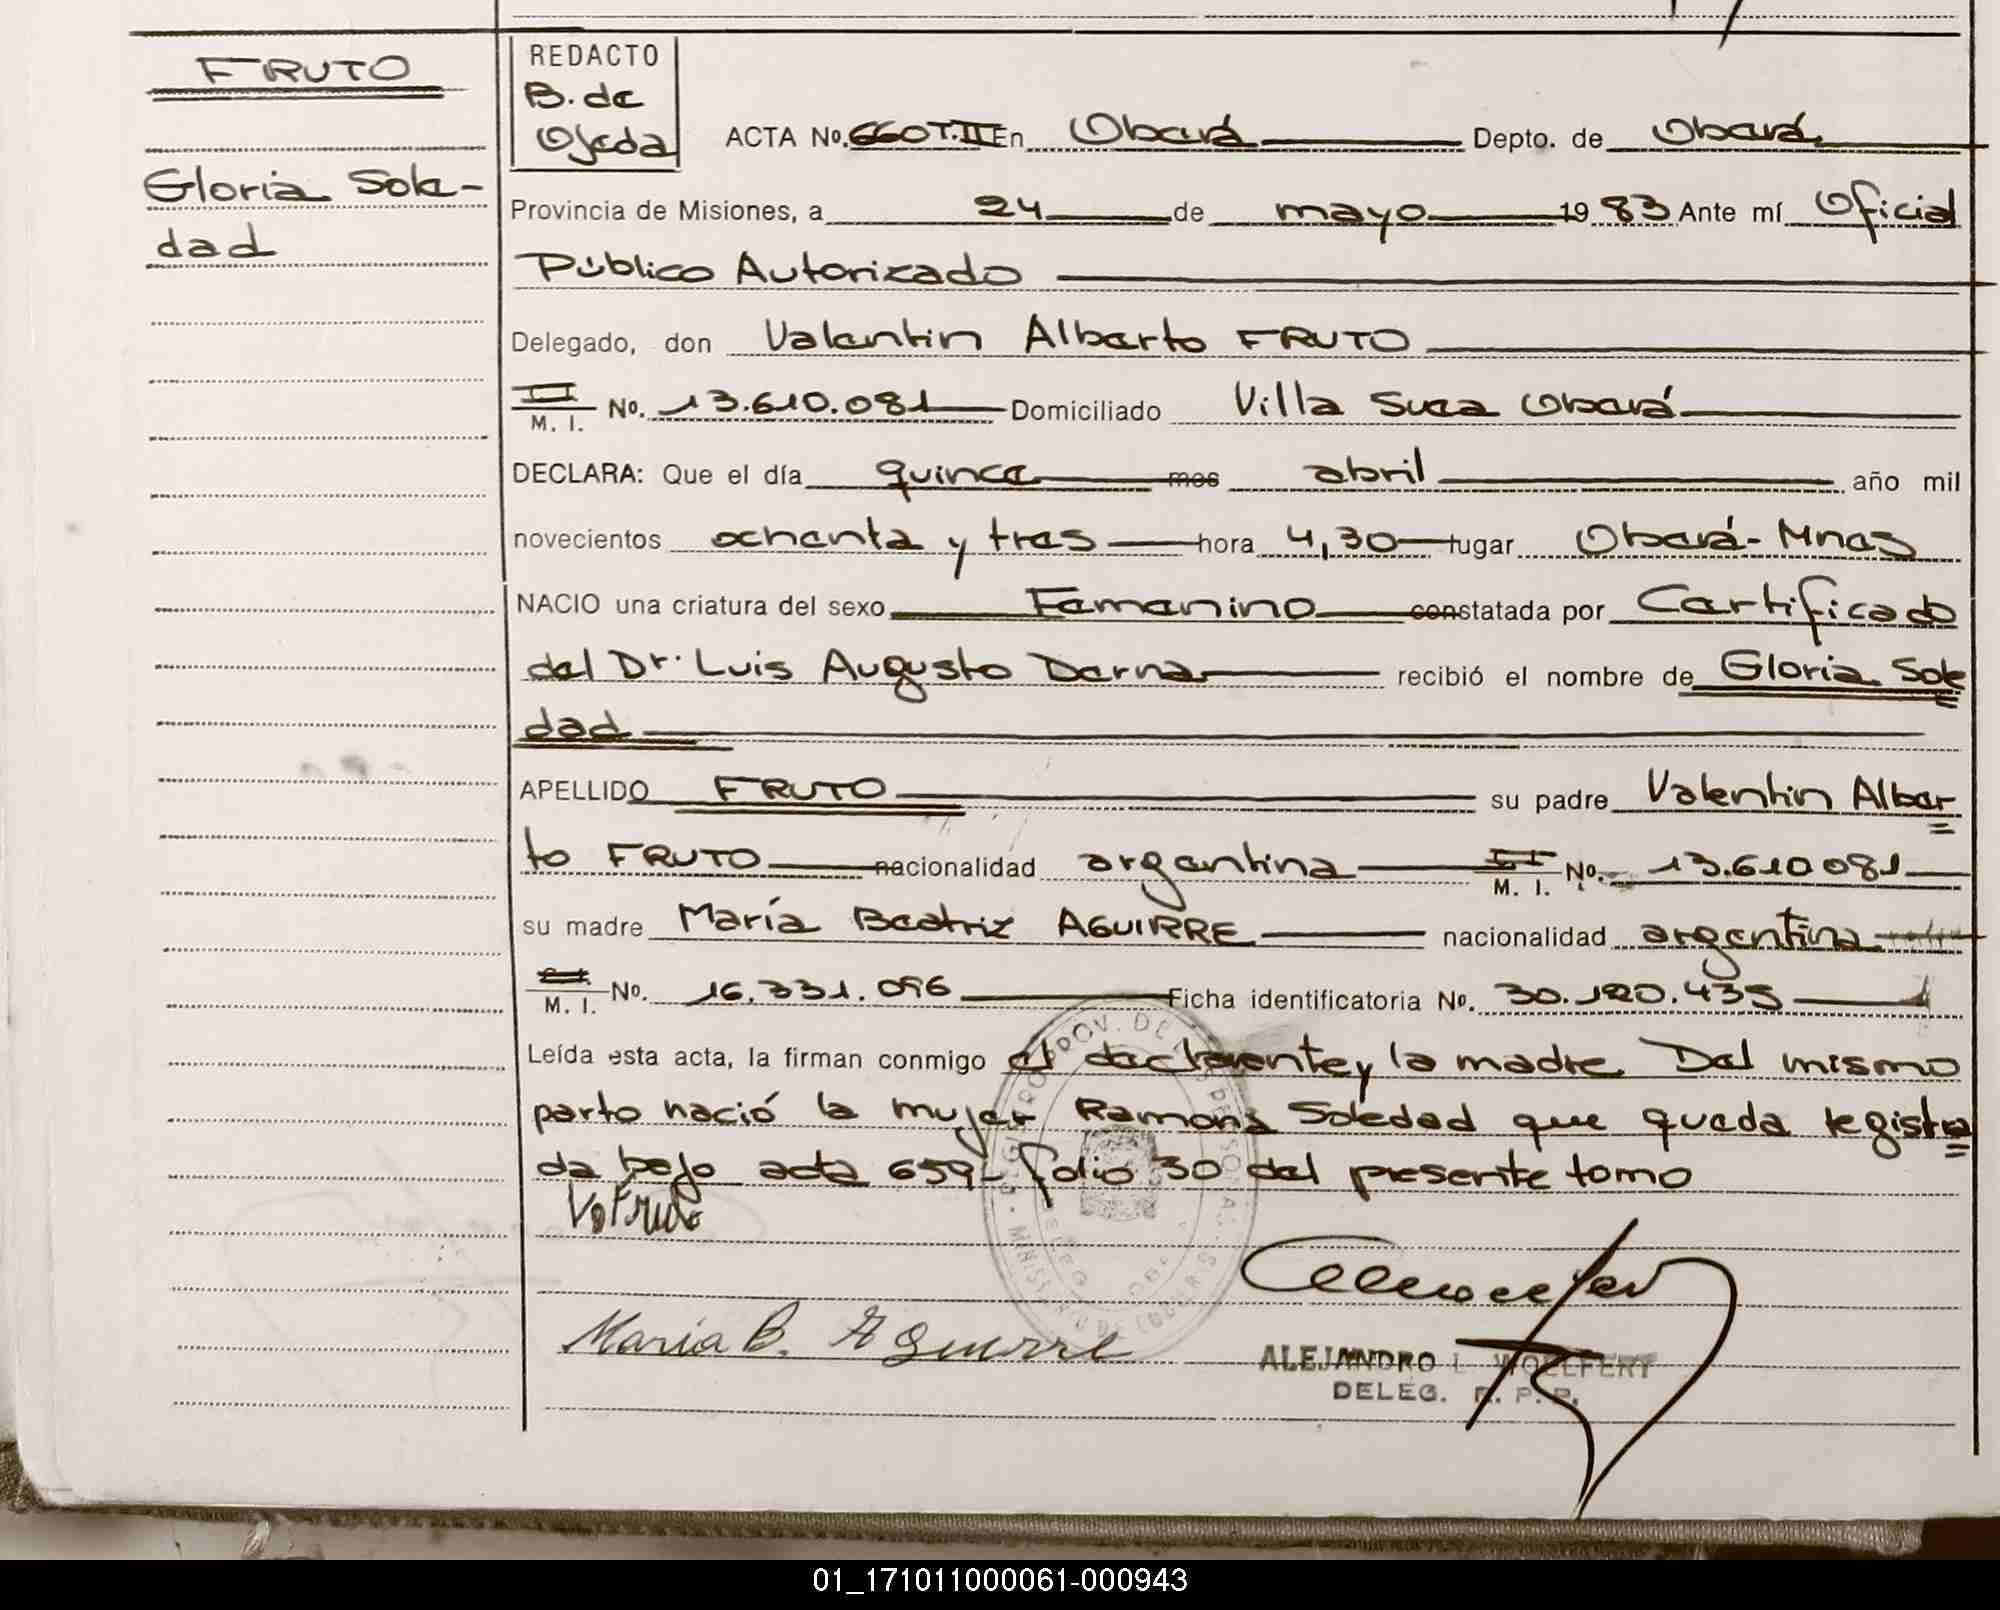 FRUTO
Gloria Sole-
dad
REDACTO
B. de
Ojeda
ACTA No. 660 T.II En Oberá Depto. de Oberá
Provincia de Misiones, a 24 de mayo 19 83 Ante mí Oficial
Público Autorizado
Delegado, don Valentin Alberto FRUTO
M. I. No. 13.610.081 Domiciliado Villa Suca Oberá
DECLARA: Que el día quince mes abril año mil
novecientos ochenta y tres hora 4,30 lugar Oberá - Mnes
NACIO una criatura del sexo Femenino constatada por Certificado
del Dr. Luis Augusto Derna recibió el nombre de Gloria Sole
dad
APELLIDO FRUTO su padre Valentin Alber
to FRUTO nacionalidad argentina M. I. No. 13.610081
su madre María Beatriz AGUIRRE nacionalidad argentina
M. I. No. 16.331.096 Ficha identificatoria No. 30.120.435
Leída esta acta, la firman conmigo el declarante y la madre. Del mismo
parto nació la mujer Ramona Soledad que queda registra
da bajo acta 659 - folio 30 del presente tomo
V. Fruto
María B. Aguirre
ALEJANDRO L. WOELFERT
DELEG. R. P. P.
01_171011000061-000943